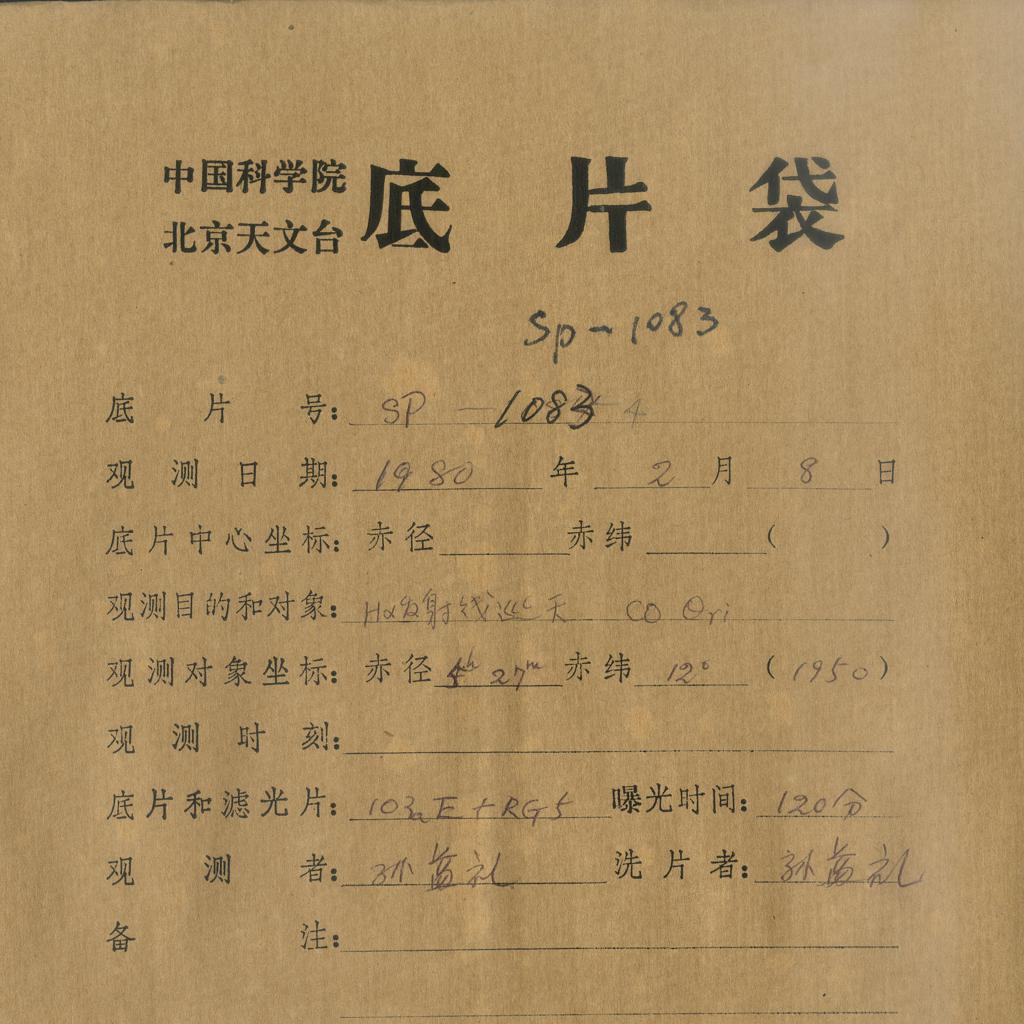 中国科学院
北京天文台
底片袋
Sp-1083
底片号: SP-1083 4
观测日期: 1980年2月8日
底片中心坐标: 赤径 赤纬 ( )
观测目的和对象: Hα发射线巡天 CO Ori
观测对象坐标: 赤径 5h 27m 赤纬 12° (1950)
观测时刻:
底片和滤光片: 103aE+RG5 曝光时间: 120分
观测者: 孙益礼 洗片者: 孙益礼
备注: